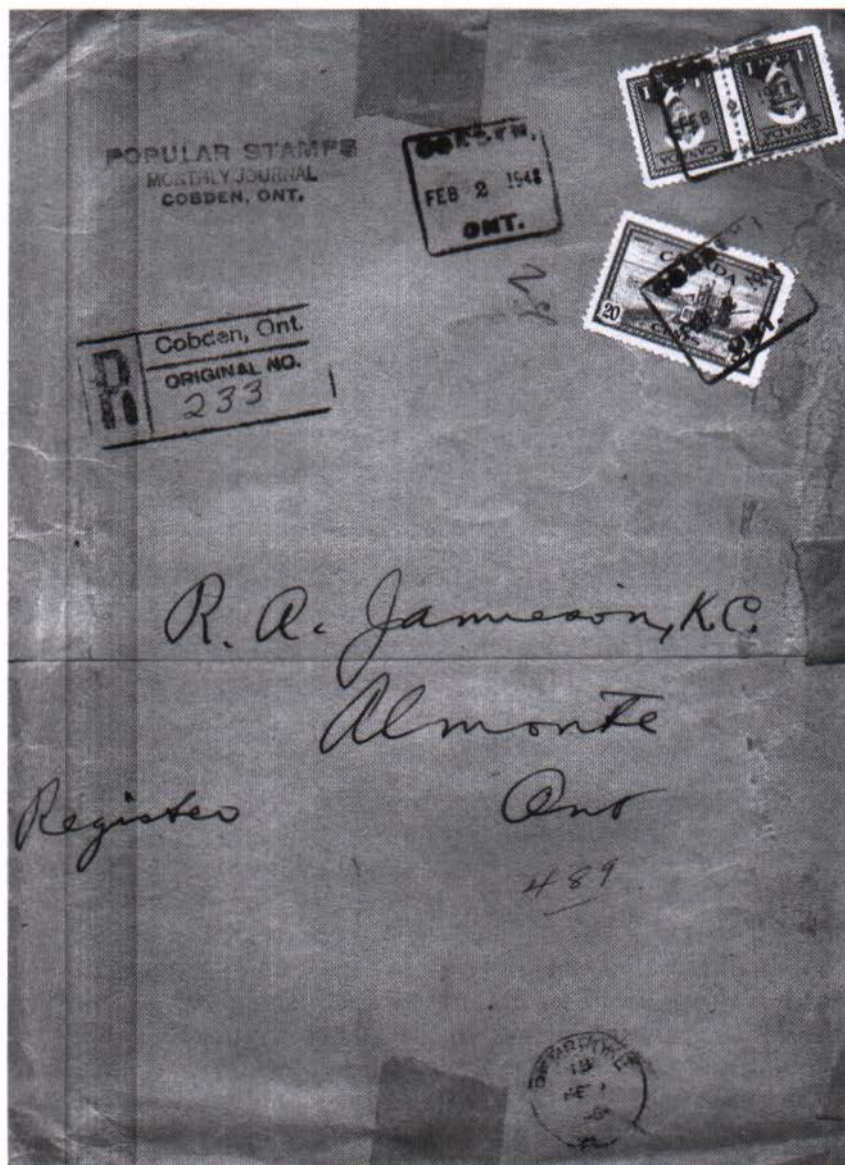 POPULAR STAMPS
MONTHLY JOURNAL
COBDEN, ONT.
COBDEN,
FEB 2 1948
ONT.
1 1
FEB
CANADA CANADA
CANADA
20
CENTS
COBDEN
ONT.
R
Cobden, Ont.
ORIGINAL NO.
233
R. A. Jamieson, K.C.
Almonte
Ont
Register
489